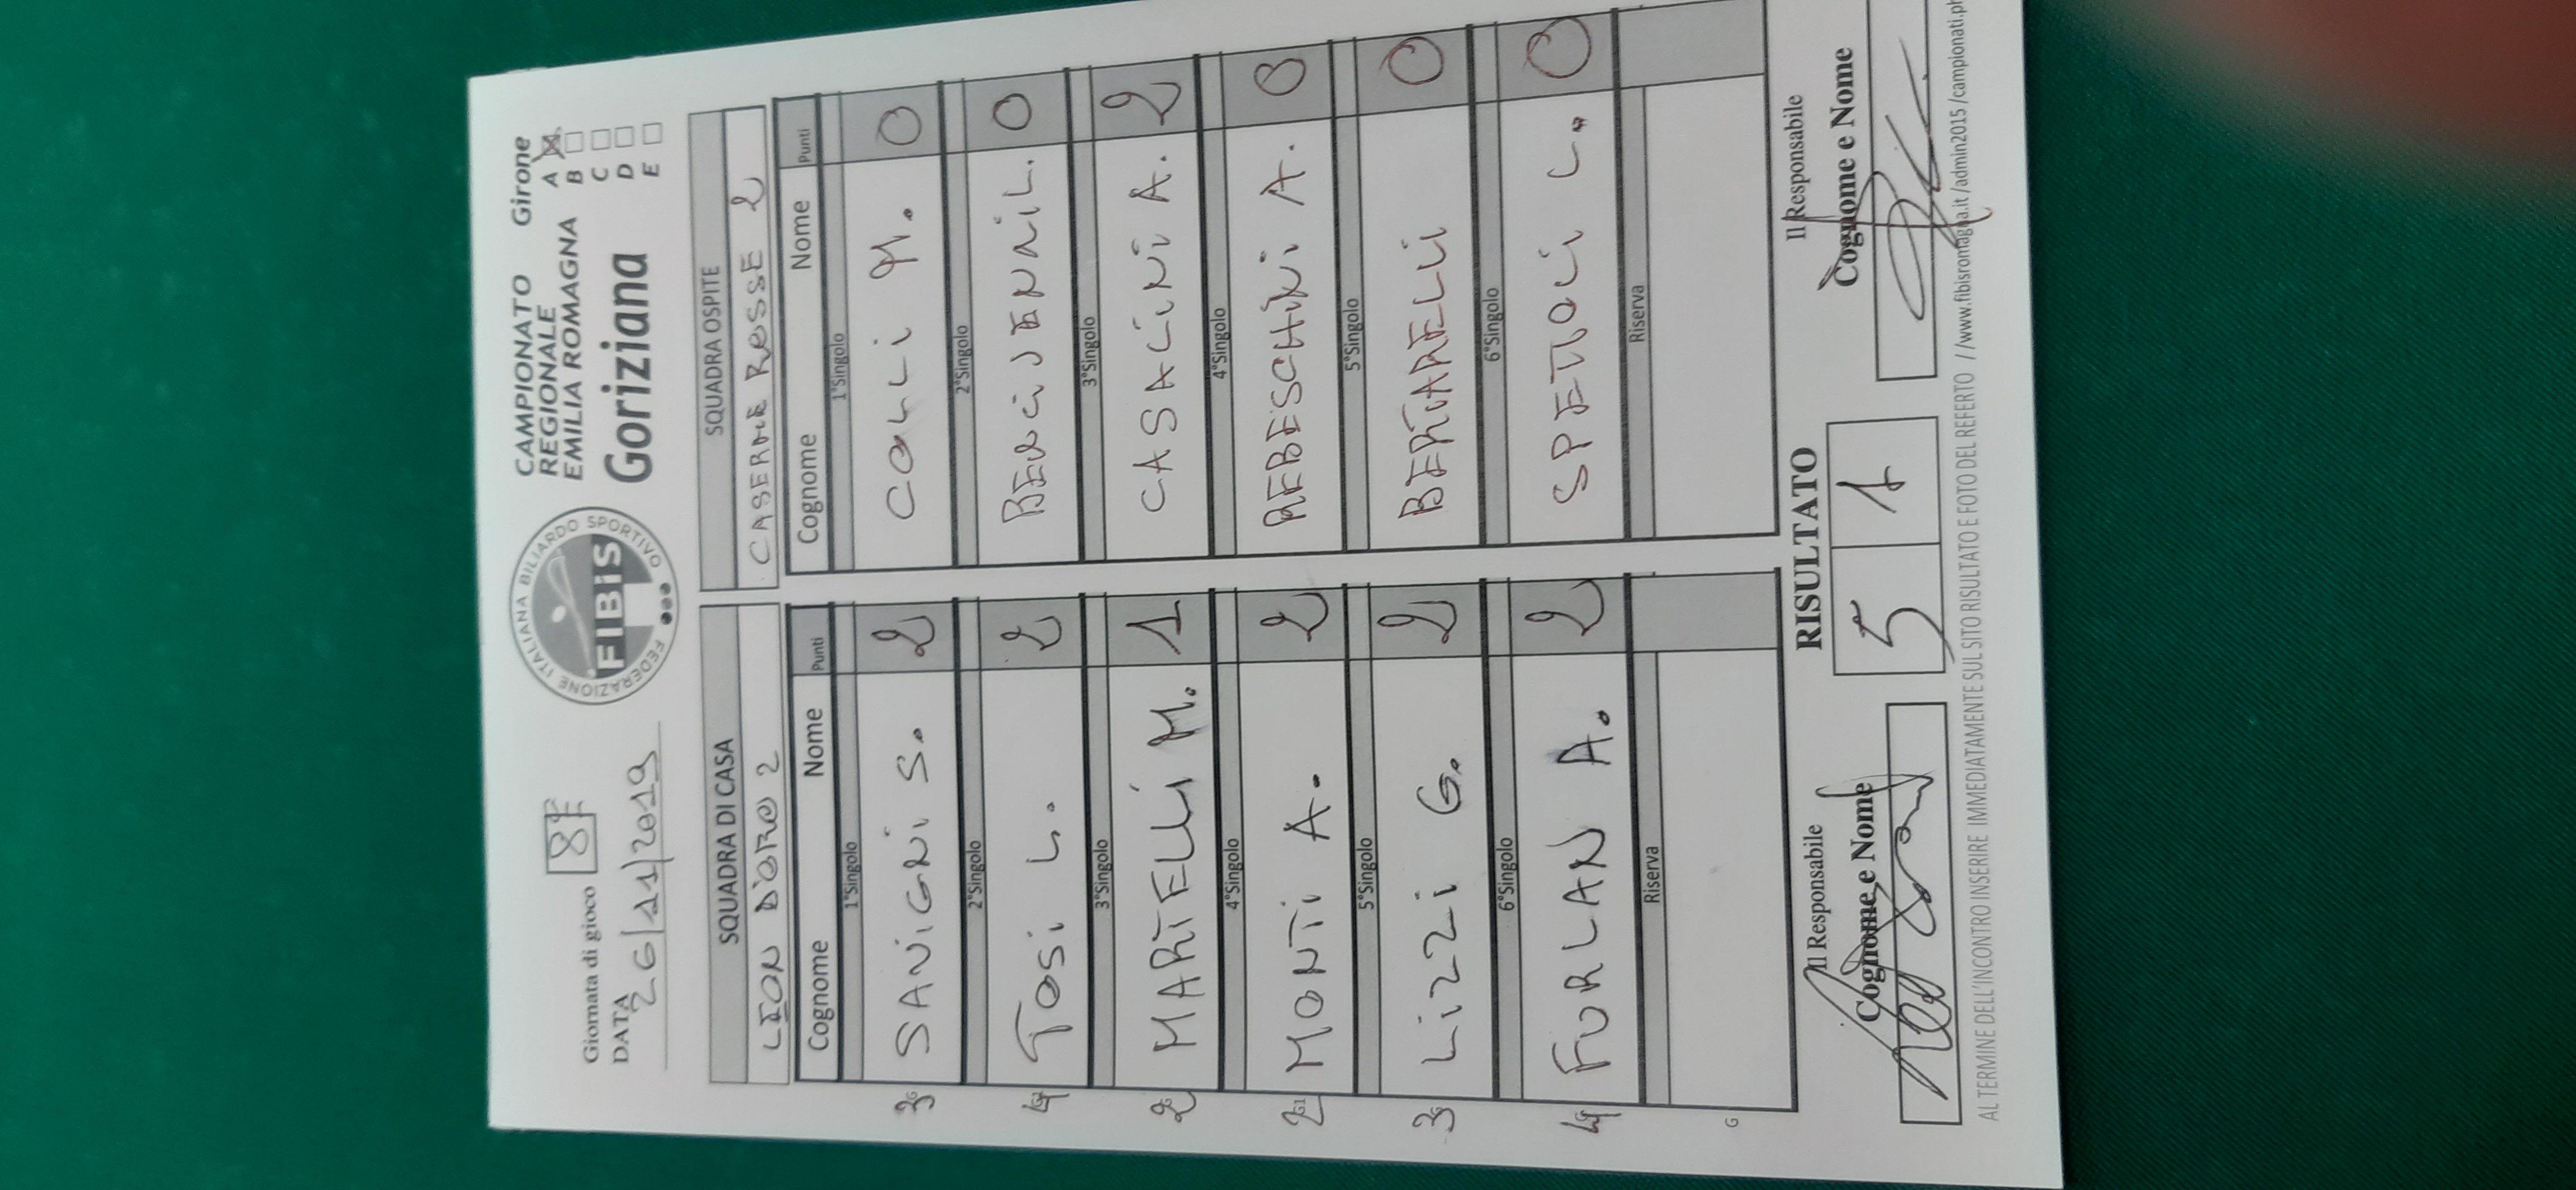 Giornata di gioco 8ª
DATA 26/11/2019
FEDERAZIONE ITALIANA BILIARDO SPORTIVO
FIBiS
CAMPIONATO Girone
REGIONALE A
EMILIA ROMAGNA B
Goriziana C
D
E
SQUADRA DI CASA SQUADRA OSPITE
LEON D'ORO 2 CASERME ROSSE 2
Cognome Nome Punti Cognome Nome Punti
1°Singolo 1°Singolo
3 SAVIGNI S. 2 COLLI M. 0
2°Singolo 2°Singolo
4 TOSI L. 2 0
3°Singolo 3°Singolo
2 MARTELLI M. 1 CASALINI A. 2
4°Singolo 4°Singolo
2 MONTI A. 2 REBESCHINI A. 0
5°Singolo 5°Singolo
3 LIZZI G. 2 BERTARELLI 0
6°Singolo 6°Singolo
4 FURLAN A. 2 SPETTOLI L. 0
Riserva Riserva
G
Il Responsabile RISULTATO Il Responsabile
Cognome e Nome 5 1 Cognome e Nome
AL TERMINE DELL'INCONTRO INSERIRE IMMEDIATAMENTE SUL SITO RISULTATO E FOTO DEL REFERTO //www.fibisromagna.it/admin2015/campionati.ph